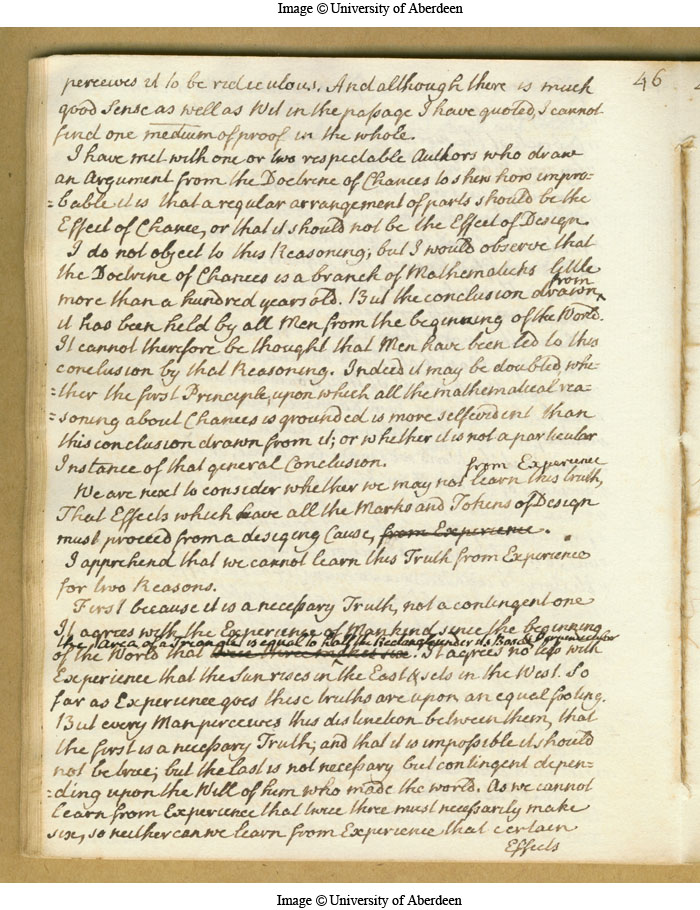 Image © University of Aberdeen
46
perceives it to be ridiculous. And although there is much
good Sense as well as Wit in the passage I have quoted, I cannot
find one medium of proof in the whole.
I have met with one or two respectable Authors who draw
an Argument from the Doctrine of Chances to shew how impro-
=bable it is that a regular arrangement of parts should be the
Effect of Chance, or that it should not be the Effect of Design.
I do not object to this Reasoning; but I would observe that
the Doctrine of Chances is a branch of Mathematicks little
from
more than a hundred years old. But the conclusion drawn ^
it has been held by all Men from the beginning of the World.
It cannot therefore be thought that Men have been led to this
conclusion by that Reasoning. Indeed it may be doubted, whe-
=ther the first Principle, upon which all the mathematical rea-
=soning about Chances is grounded is more selfevident than
this conclusion drawn from it; or whether it is not a particular
Instance of that general Conclusion.
from Experience
We are next to consider whether we may not learn this truth,
That Effects which have all the Marks and Tokens of Design
must proceed from a desiging Cause, from Experience.
I apprehend that we cannot learn this Truth from Experience
for two Reasons.
First because it is a necessary Truth, not a contingent one
It agrees with the Experience of Mankind since the beginning
the Area of a Triangle is equal to half the Rectangle under its Base & Perpendicular
of the World that twice three makes six. It agrees no less with
Experience that the Sun rises in the East & sets in the West. So
far as Experience goes these truths are upon an equal footing.
But every Man perceives this distinction between them, that
the first is a necessary Truth, and that it is impossible it should
not be true; but the last is not necessary but contingent depen-
=ding upon the Will of him who made the world. As we cannot
learn from Experience that twice three must necessarily make
six, so neither can we learn from Experience that certain
Effects
Image © University of Aberdeen